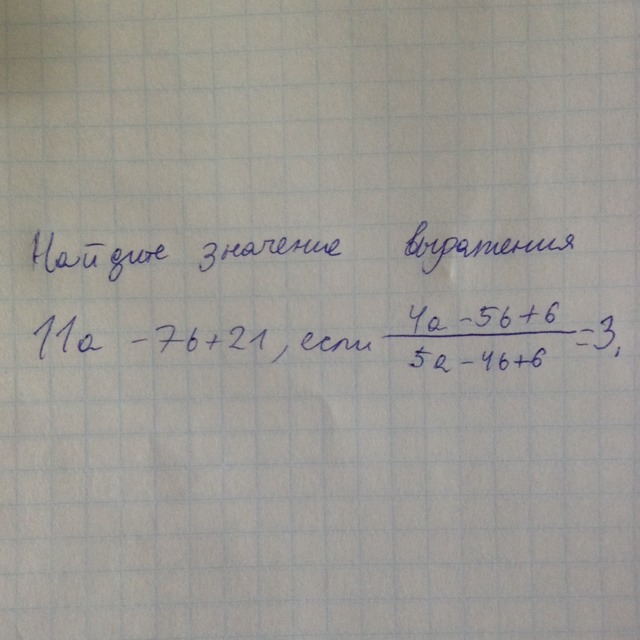 Найдите значение выражения
11a - 7b + 21, если (4a - 5b + 6)/(5a - 4b + 6) = 3,